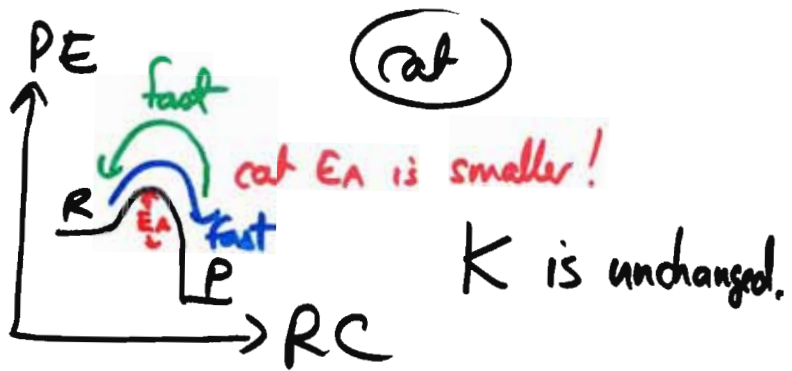 PE
cat
fast
cat EA is smaller!
R
EA
fast
P
K is unchanged.
RC